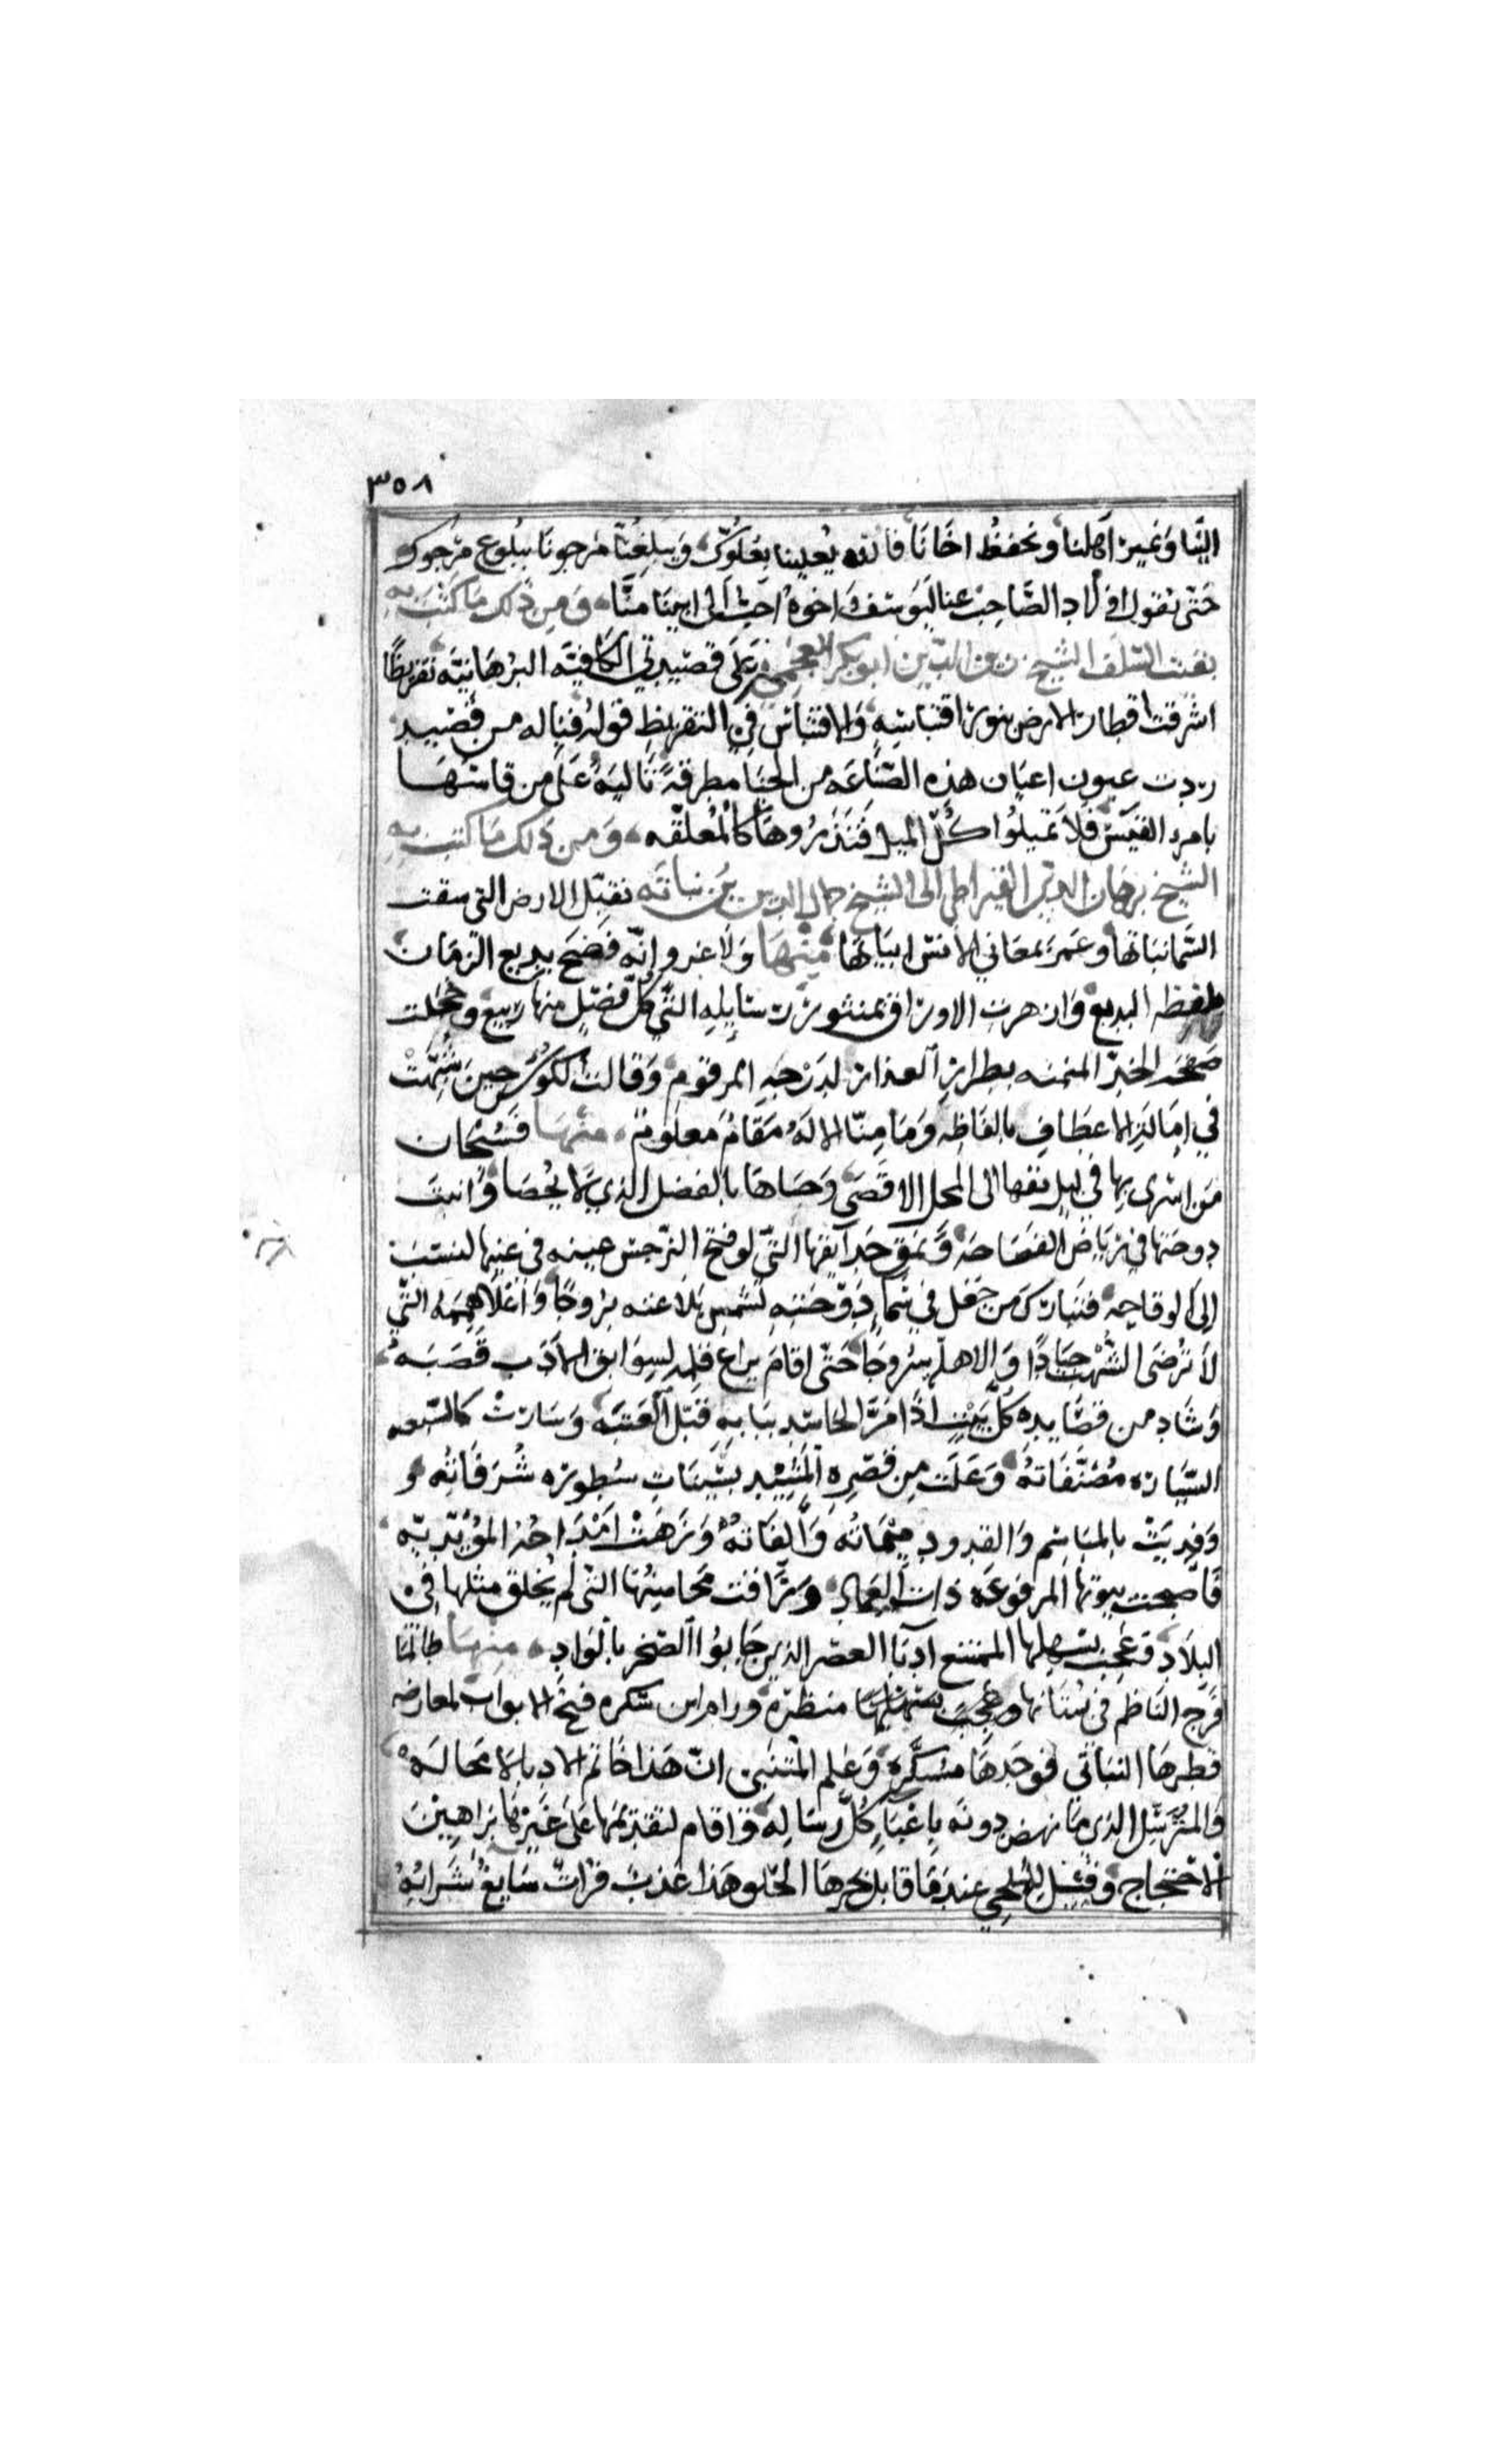 ٣٥٨
الينا ونمير اهلنا ونحفظ اخانا فالله يعلينا بعلوك ويبلغنا مرجونا ببلوغ مرجوك
حتى نقول اولاد الصاحب عنا ليوسف واخوه احب الى ابينا منا ومن ذلك ما كتب به
بقيت السلف الشيخ زين الدين ابو بكر العجمي على قصيدتي الكافية البرهانية تقريظا
اشرقت اقطار الارض بنور اقتباسه والاقتباس في التقريظ قوله فياله من قصيد
ردت عيون اعيان هذه الصناعه من الحيا مطرقة تاليه على من قاسها
بامرء القيس فلا تميلوا كل الميل فتذروها كالمعلقه ومن ذلك ما كتب به
الشيخ برهان الدين القيراطي الى الشيخ جمال الدين بن نباته نقبل الارض التي سقت
السما نباتها وعمر بمعاني الانس ابياتها منها ولا غرو انه فضح بديع الزمان
لفظه البديع وازهرت الاوراق بمنثور رسايله التي كل فصل منها ربيع وخجلت
صفحه الخد المنمنه بطراز العذار لدرجه المرقوم وقالت الكوس حين شبهت
في امالة الاعطاف بالفاظه وما منا الا له مقام معلوم منها فسبحان
من اسرى بها في ليل نقسها الى المحل الاقصى وحباها بالفضل الذي لا يحصا وانبت
دوحتها في رياض الفصاحه ونمق حدآيقها التي لو فتح النرجس عينه في عينها لنسب
الى الوقاحه فتبارك من جعل في سماء دوحته لشمس بلاغته بروجا واعلا هممه التي
لا ترضى الشهب جيادا والاهله سروجا حتى اقام يراع قلمه لسوابق الادب قصبه
وشاد من قصايده كل بيت اذا مر الحاسد ببابه قبل العتبه وسارت كالسبعه
السياره مصنفاته وعلت من قصره المشيد بشينات سطوره شرفاته و
وفديت بالمباسم والقدود ميماته والفاته ونزهت امداحه المؤيديه
فاصبحت بيوتها المرفوعه ذات العماد وراقت محاسنها التي لم يخلق مثلها في
البلاد وتعجب بسهلها الممتنع ادبا العصر الذين جابوا الصخر بالواد منها طالما
فرج الناظم في بستانها منظره ورام ابن سكره فتح الابواب لمعارضه
قطرها النباتي فوجدها مسكره وعلم المتنبي ان هذا خاتم الادبا لا محاله
والمترسل الذي ما نهض دونه باعباء كل رساله واقام لتقديمها على غيرها براهين
الاحتجاج وقيل للحلي عندما قابل بحرها الحلو هذا عذب فرات سايغ شرابه